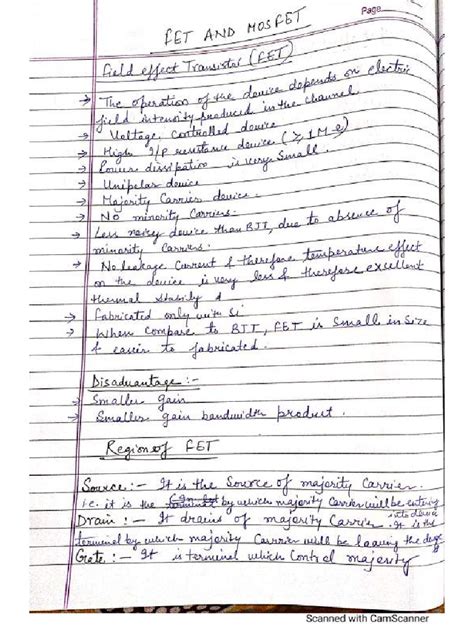 Page
FET AND MOSFET
Field effect Transistor (FET)
→ The operation of the device depends on electric
field intensity produced in the channel
→ Voltage controlled device
→ High I/P resistance device (≥ 1M
→ Power dissipation is very small.
→ Unipolar device
→ Majority Carrier device.
→ No minority Carriers.
→ Less noisy device than BJT, due to absence of
minority Carriers.
→ No leakage Current & therefore temperature effect
on the device is very less & therefore excellent
thermal stability &
→ Fabricated only with Si
→ When compare to BJT, FET is Small in Size
& easier to fabricated.
Disadvantage :-
→ Smaller gain
→ Smaller gain bandwidth product.
Region of FET
Source :- It is the Source of majority Carrier.
i.e. it is the terminal by which majority Carrier will be entering
into device
Drain :- It drains of majority Carrier. It is the
terminal by which majority Carrier will be leaving the
Gate :- It is terminal which Control majority
Scanned with CamScanner